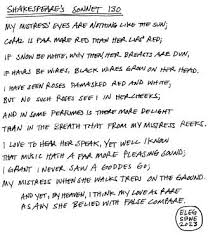 SHAKESPEARE'S SONNET 130
MY MISTRESS' EYES ARE NOTHING LIKE THE SUN;
CORAL IS FAR MORE RED THAN HER LIPS' RED;
IF SNOW BE WHITE, WHY THEN HER BREASTS ARE DUN,
IF HAIRS BE WIRES, BLACK WIRES GROW ON HER HEAD.
I HAVE SEEN ROSES DAMASKED RED AND WHITE,
BUT NO SUCH ROSES SEE I IN HER CHEEKS;
AND IN SOME PERFUMES IS THERE MORE DELIGHT
THAN IN THE BREATH THAT FROM MY MISTRESS REEKS.
I LOVE TO HEAR HER SPEAK, YET WELL I KNOW
THAT MUSIC HATH A FAR MORE PLEASING SOUND;
I GRANT I NEVER SAW A GODDESS GO;
MY MISTRESS WHEN SHE WALKS TREADS ON THE GROUND.
AND YET, BY HEAVEN, I THINK MY LOVE AS RARE
AS ANY SHE BELIED WITH FALSE COMPARE.
2023